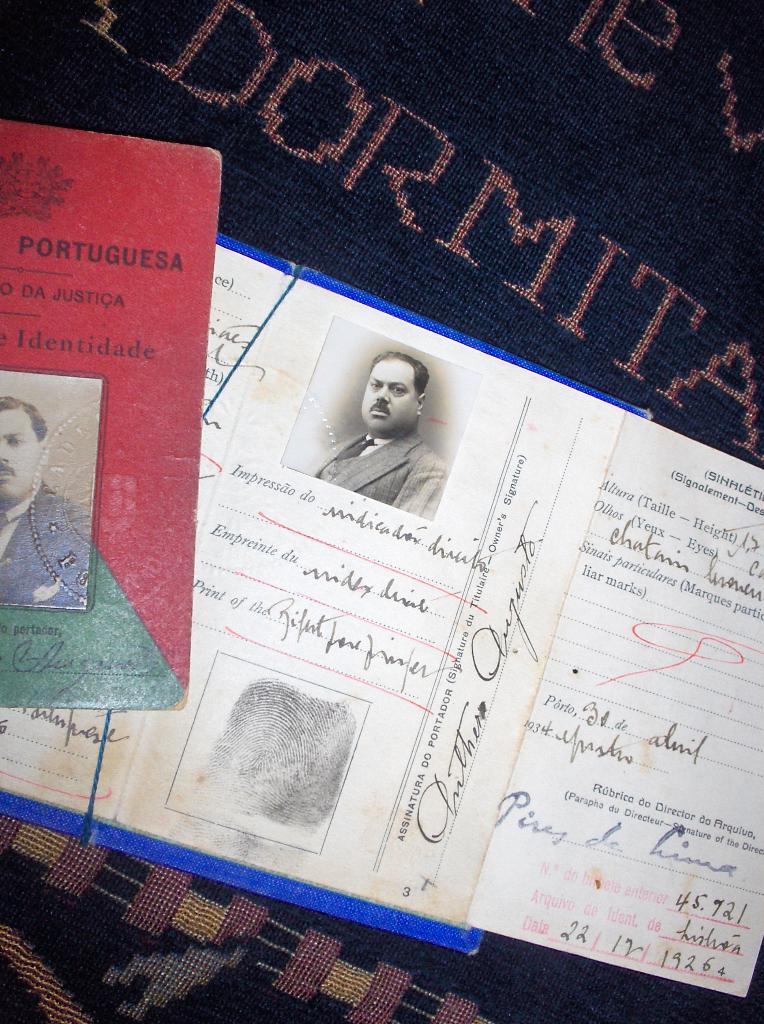 DORMITA
PORTUGUESA
O DA JUSTIÇA
e Identidade
portador,
ce)
th)
Impressão do indicador direito
Empreinte du index droit
Print of the Right fore finger
ASSINATURA DO PORTADOR (Signature du Titulaire, Owner's Signature)
Augusto
3
(SINALÉTI
(Signalement—Des
Altura (Taille — Height) 1,7
Olhos (Yeux — Eyes) ca
chatain
Sinais particulares (Marques partic
liar marks)
Pôrto, 30 de abril
1934
Rúbrica do Director do Arquivo,
(Paraphe du Directeur—Signature of the Direc
Pires de Lima
N.º do bilhete anterior 45.921
Arquivo de Ident. de Lisboa
Data 22/12/1926